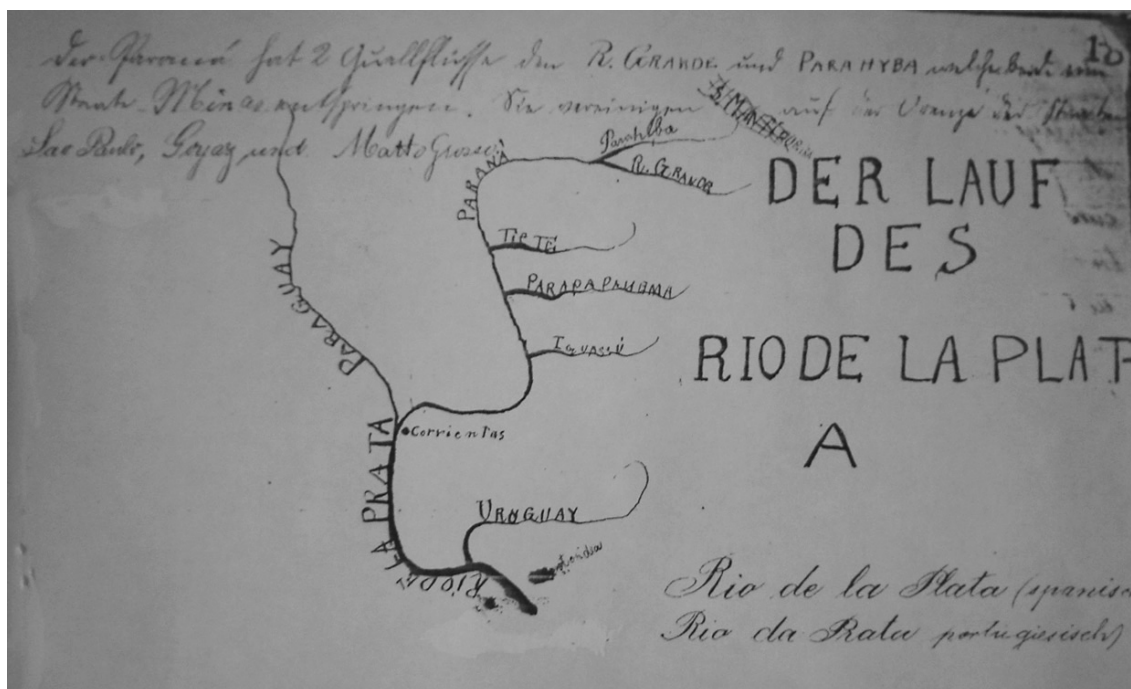 10
Der Paraná hat 2 Quellflüsse den R. GRANDE und PARAHYBA welche beide im
Staate Minas entspringen. Sie vereinigen auf der Grenze der Staaten
Sao Paulo, Goyaz und Matto Grosso.
S. MANTIQUEIRA
Parahyba
R. GRANDE
PARANÁ
DER LAUF
DES
RIO DE LA PLAT
A
TIETÉ
PARAPAPANEMA
IGUASSÚ
PARAGUAY
Corrientas
RIO DE LA PRATA
URUGUAY
Rio de la Plata (spanisch
Rio da Prata portugiesisch)